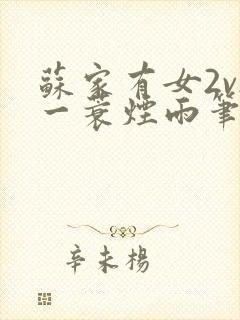 蘇家有女2v
一蓑煙雨筆
辛未楊